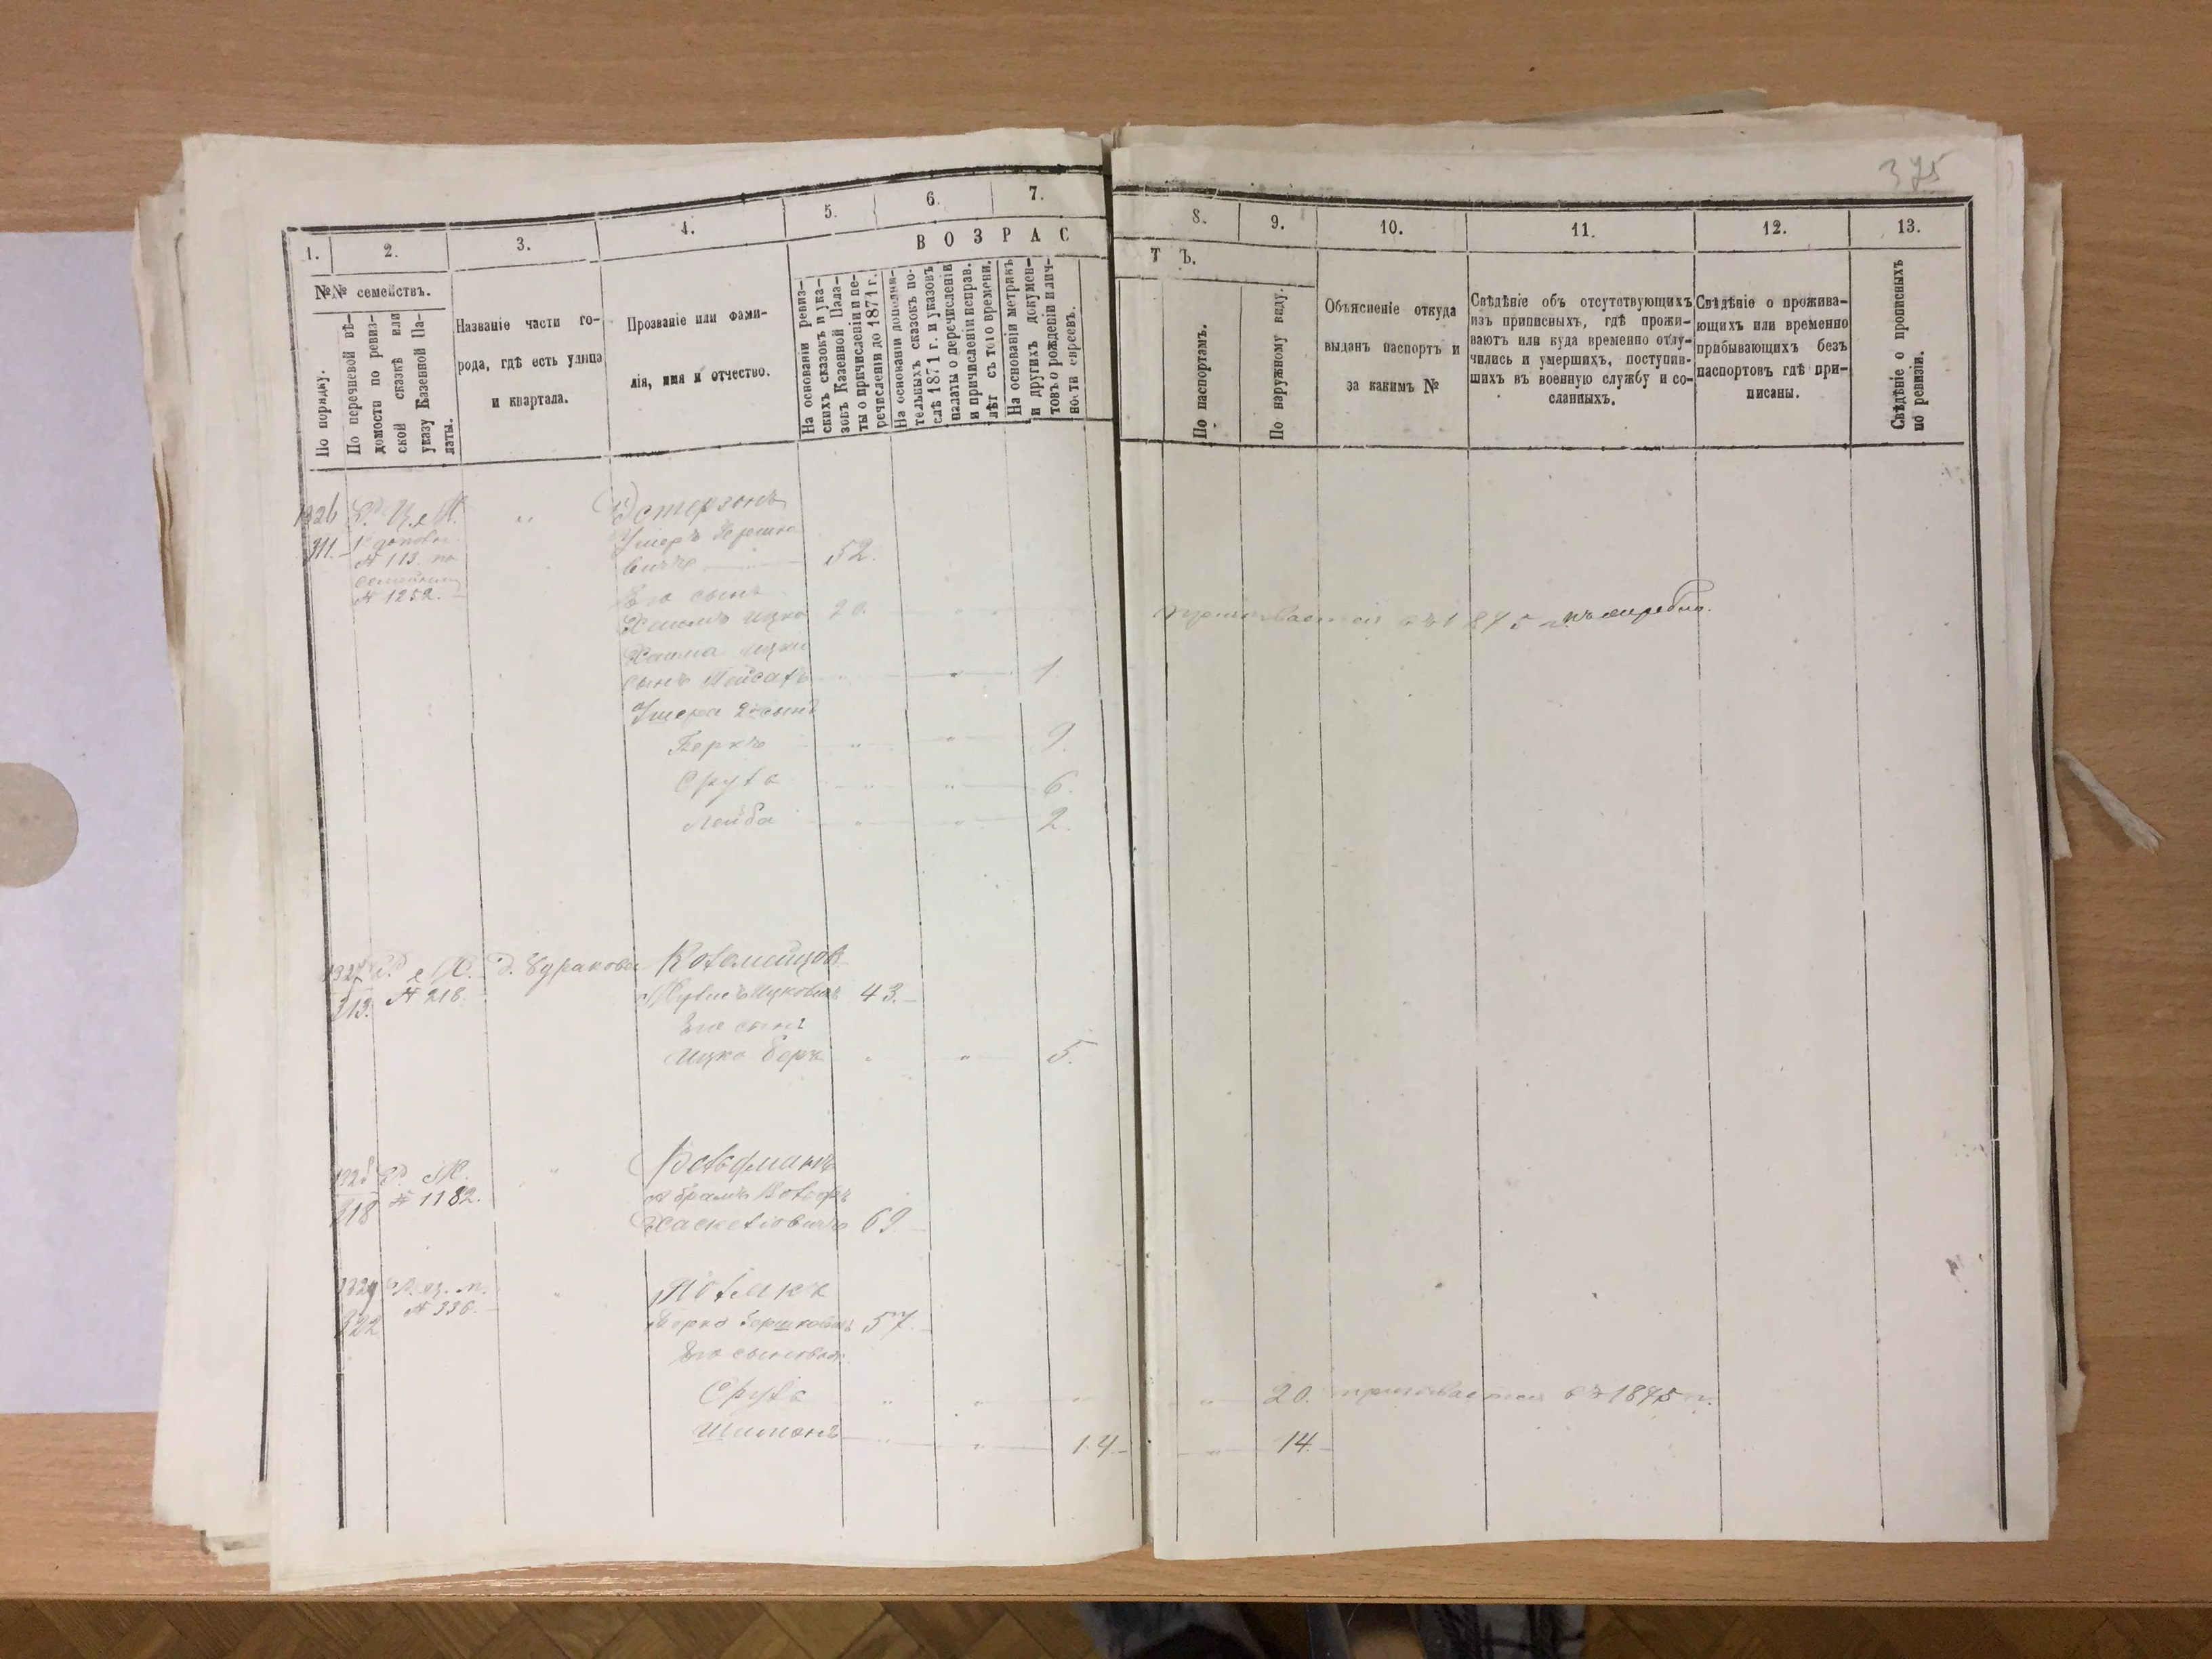 375
1.
2.
3.
4.
5.
6.
7.
В О З Р А С
№№ семействъ.
По порядку.
По перечневой вѣ-
домости по ревиз-
ской сказкѣ или
указу Казенной Па-
латы.
Названіе части го-
рода, гдѣ есть улица
и квартала.
Прозваніе или фами-
лія, имя и отчество.
На основаніи ревиз-
скихъ сказокъ и ука-
зовъ Казенной Пала-
ты о причисленіи и пе-
речисленіи до 1871 г.
На основаніи дополни-
тельныхъ сказокъ по-
слѣ 1871 г. и указовъ
палаты о перечисленіи
и причисленіи исправ.
лѣт съ того времени.
На основаніи метрикъ
и другихъ докумен-
товъ о рожденіи и лич-
ности евреевъ.
8.
9.
10.
11.
12.
13.
Т Ъ.
По паспортамъ.
По наружному виду.
Объясненіе откуда
выданъ паспортъ и
за какимъ №
Свѣдѣніе объ отсутствующихъ
изъ приписныхъ, гдѣ прожи-
ваютъ или куда временно отлу-
чились и умершихъ, поступив-
шихъ въ военную службу и со-
сланныхъ.
Свѣдѣніе о прожива-
ющихъ или временно
прибывающихъ безъ
паспортовъ гдѣ при-
писаны.
Свѣдѣніе о прописныхъ
по ревизіи.
1926
Эстерзонъ
Ушеръ
вичъ 52.
№ 113. по
№ 1252.
Его сынъ
Хаимъ Ицко 20
призывается въ 1875 г.
Хаима Ицки
сынъ Пейсахъ 1
Ушера 2й сынъ
Берко 9.
Сруль 6.
Лейба 2.
1927
313. № 218.
Ицковичъ 43.
Его сынъ
Ицко Берк 5.
1928
318 № 1182.
Вольфманъ
Абрамъ Вольфъ
Хаскелiовичъ 69
1929
322 № 336.
Польакъ
Берко Гершковичъ 57.
Его сыновья
Сруль 20. призывается въ 1875 г.
Шимонъ 14 14.